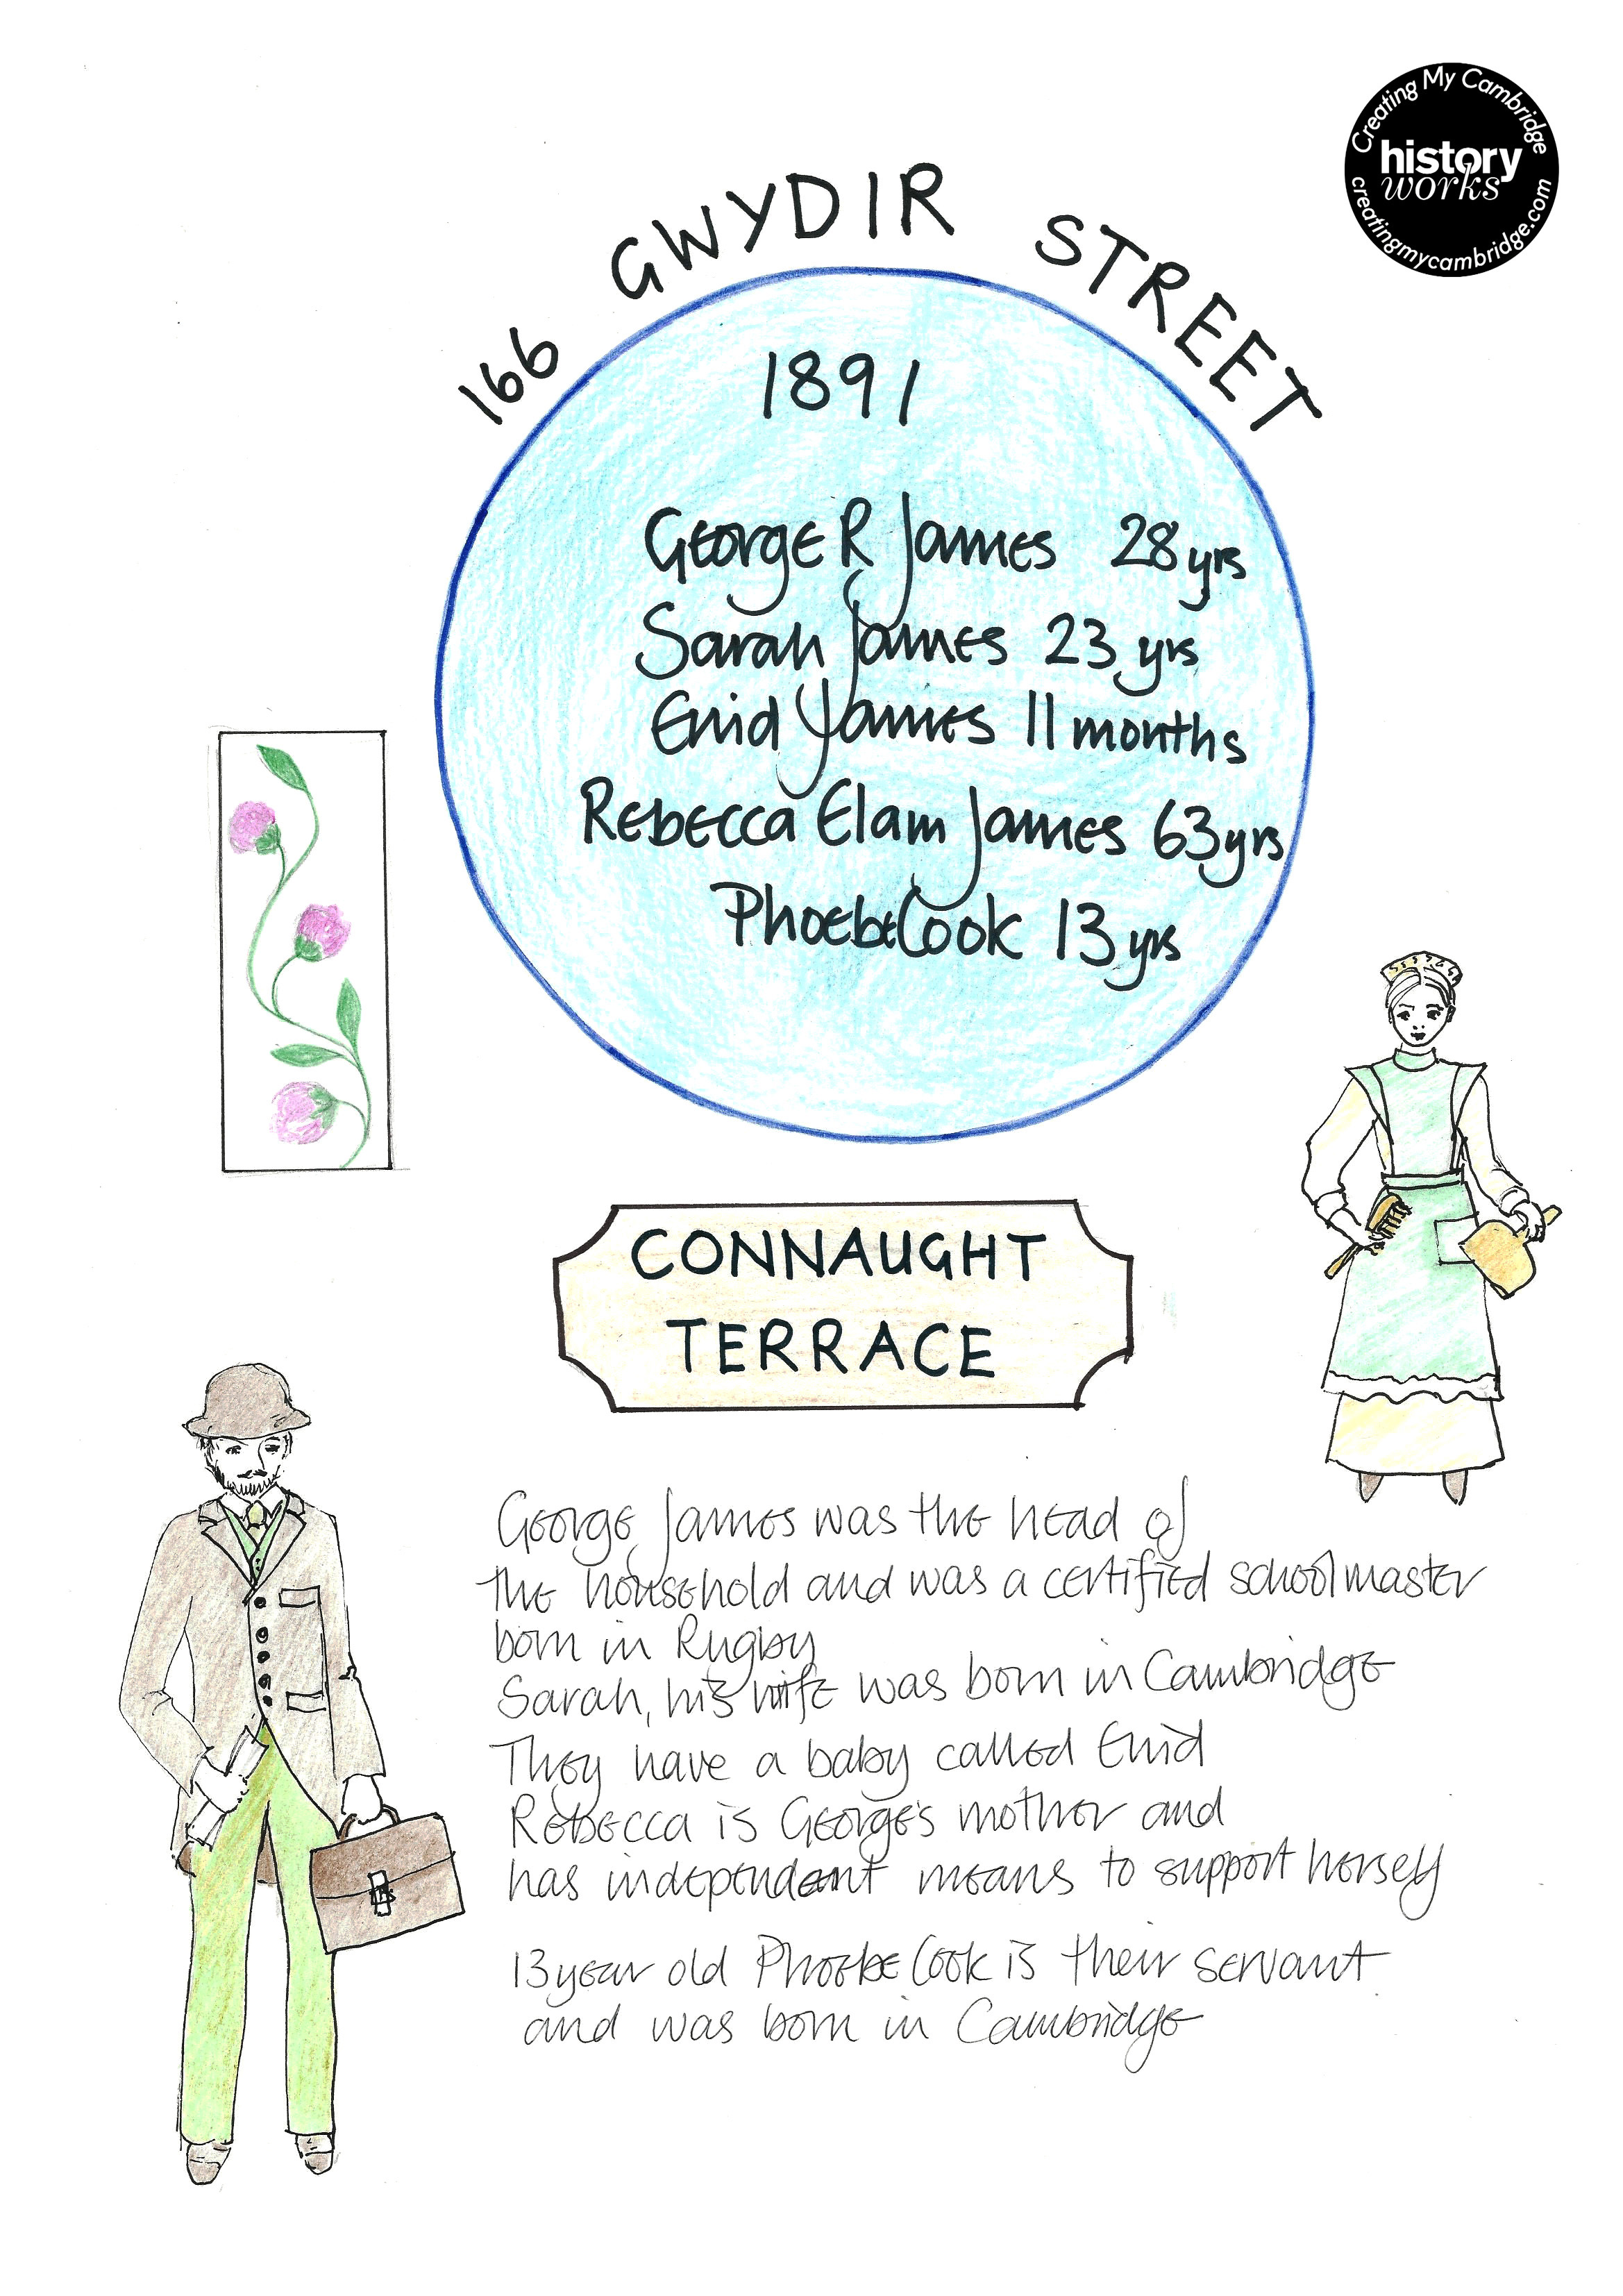 Creating My Cambridge
history
works
creatingmycambridge.com
166 GWYDIR STREET
1891
George R James 28 yrs
Sarah James 23 yrs
Enid James 11 months
Rebecca Elam James 63 yrs
Phoebe Cook 13 yrs
CONNAUGHT
TERRACE
George James was the head of
the household and was a certified schoolmaster
born in Rugby
Sarah, his wife was born in Cambridge
They have a baby called Enid
Rebecca is George's mother and
has independent means to support herself
13 year old Phoebe Cook is their servant
and was born in Cambridge